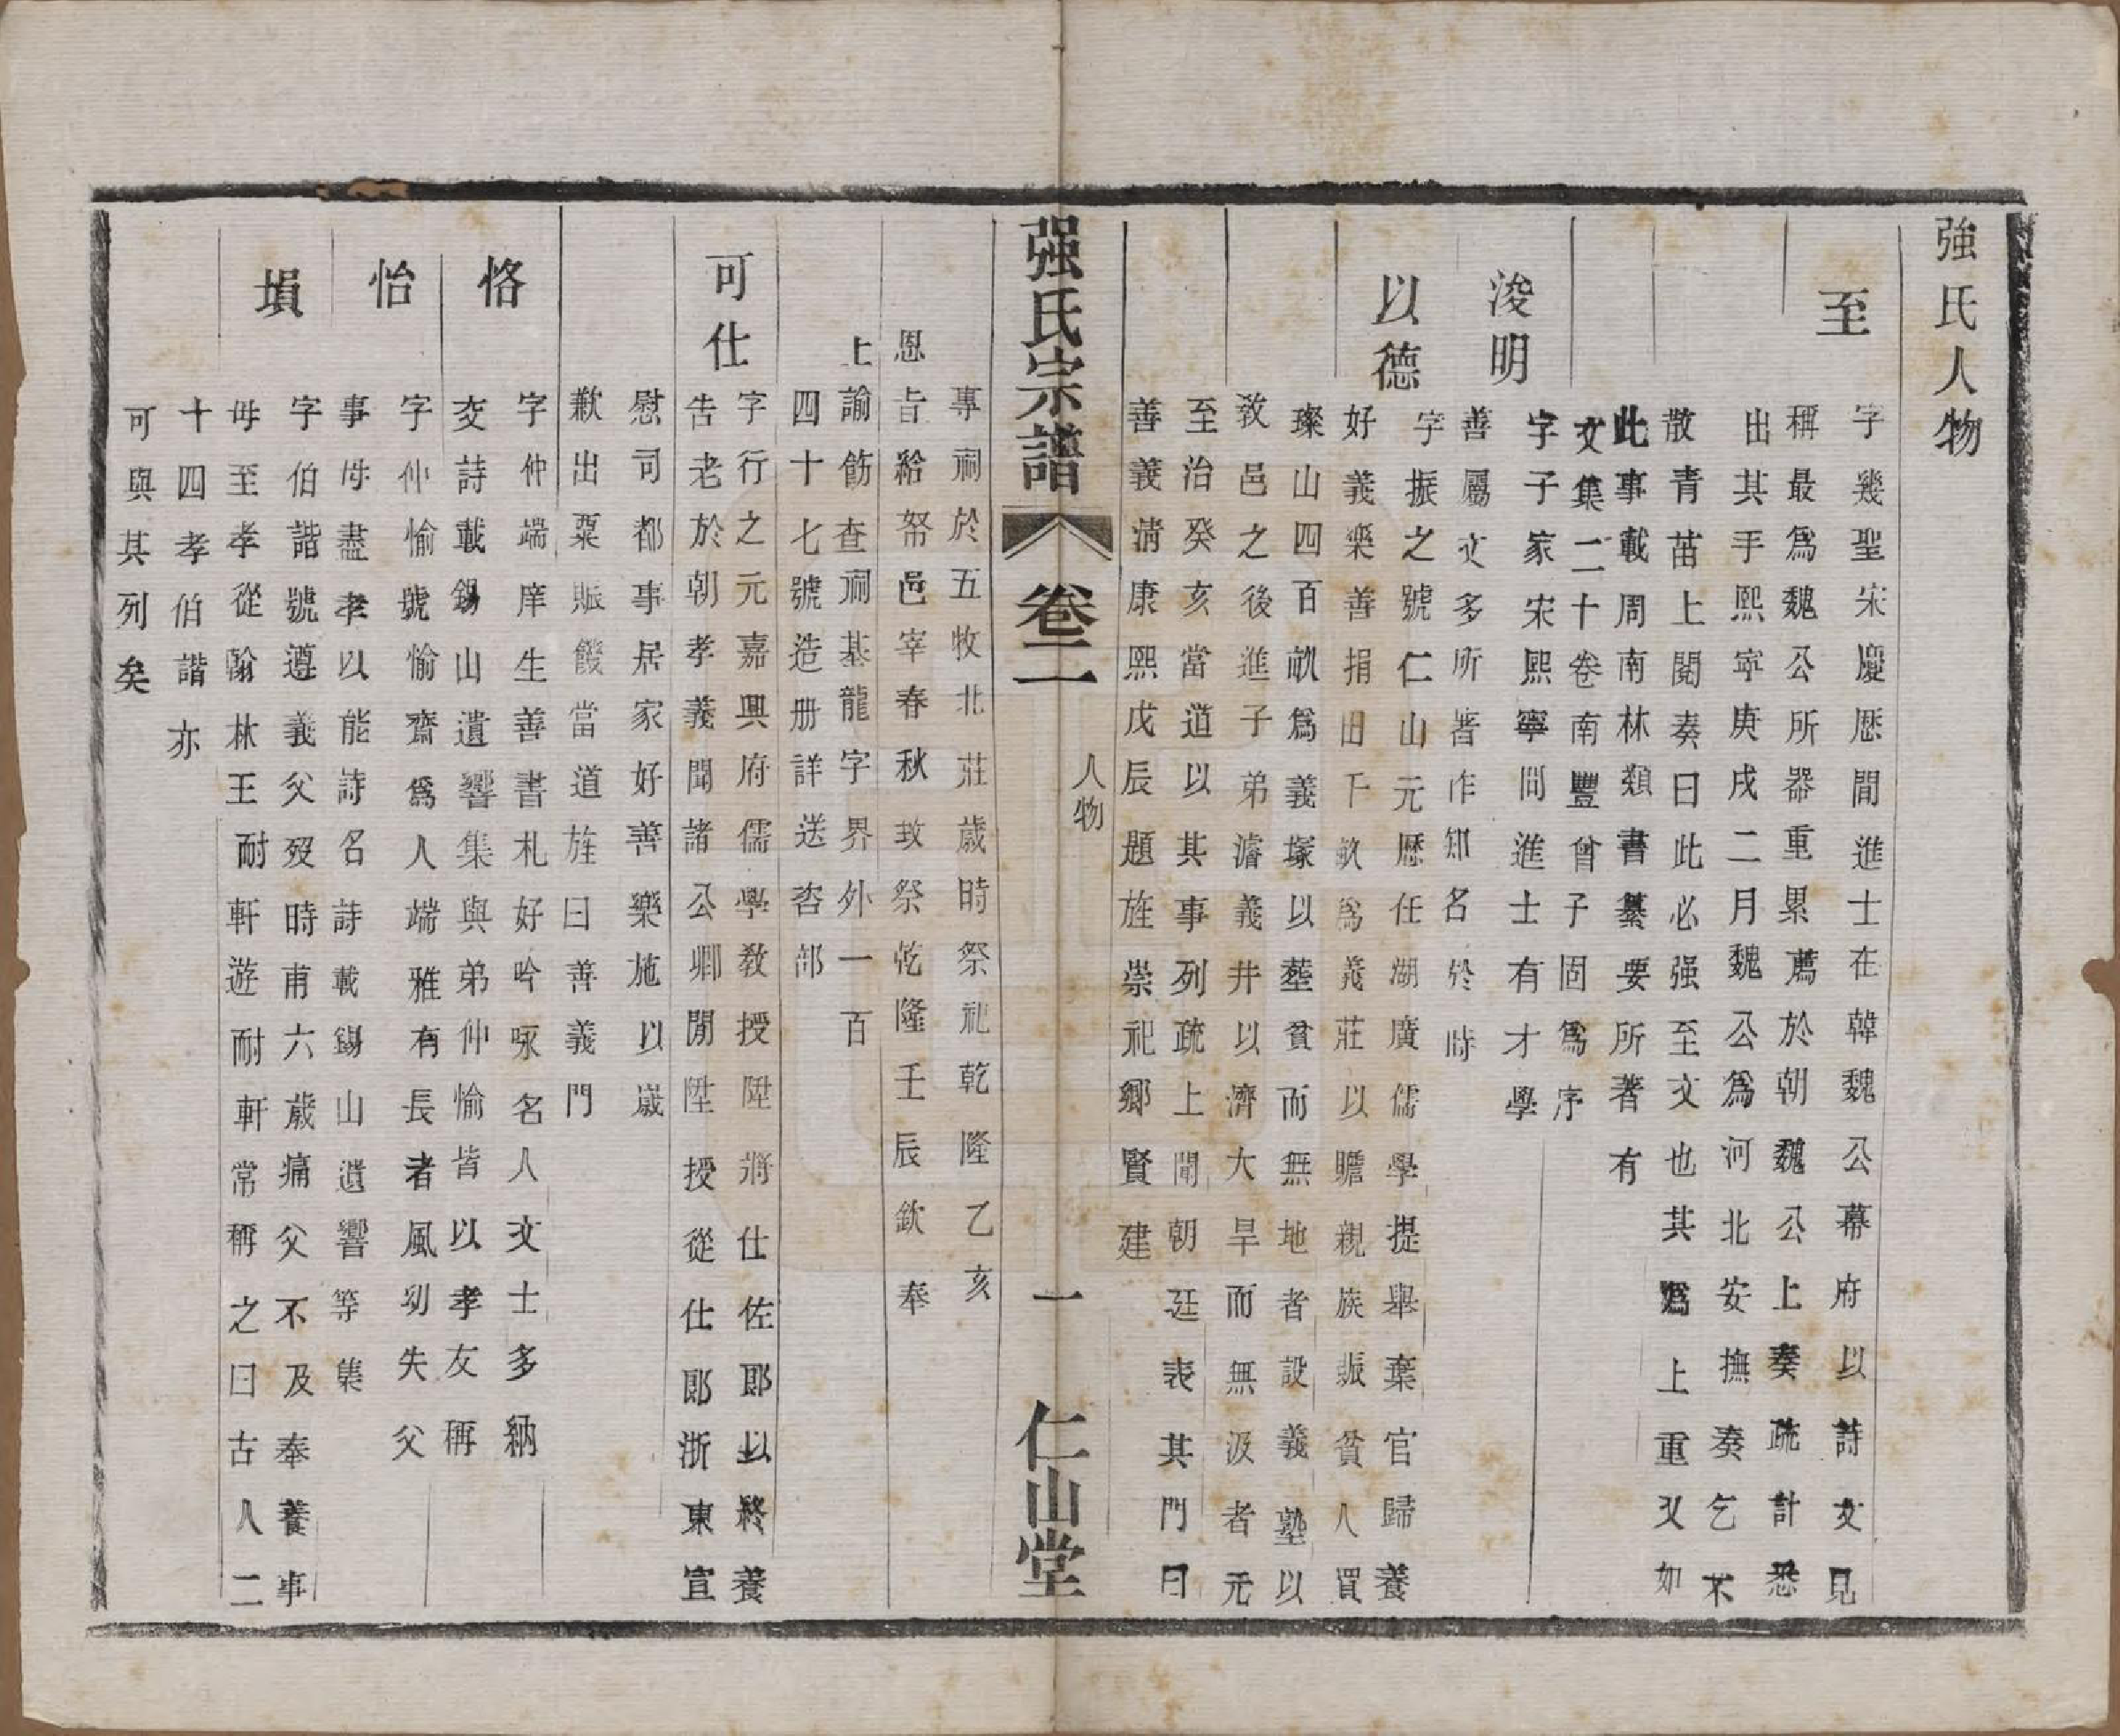 強氏人物
至
字幾聖宋慶歷間進士在韓魏公幕府以詩文見
稱最爲魏公所器重累薦於朝魏公上奏疏計悉
出其手熙寧庚戌二月魏公爲河北安撫奏乞不
散青苗上閱奏曰此必强至文也其爲上重又如
此事載周南林類書纂要所著有
文集二十卷南豐曾子固爲序
浚明
字子家宋熙寧間進士有才學
善屬文多所著作知名於時
以德
字振之號仁山元歷任湖廣儒學提舉棄官歸養
好義樂善捐田千畝爲義莊以贍親族賑貧人買
璨山四百畝爲義塚以塟貧而無地者設義塾以
敎邑之後進子弟濬義井以濟大旱而無汲者元
至治癸亥當道以其事列疏上聞朝廷表其門曰
善義淸康熙戊辰題旌崇祀鄉賢建
强氏宗譜
卷二
人物
一
仁山堂
專祠於五牧北莊歲時祭祀乾隆乙亥
恩旨給帑邑宰春秋致祭乾隆壬辰欽奉
上諭飭查祠基龍字界外一百
四十七號造册詳送咨部
可仕
字行之元嘉興府儒學敎授陞將仕佐郎以終養
告老於朝孝義聞諸公卿間陞授從仕郎浙東宣
慰司都事居家好善樂施以歲
歉出粟賑饑當道旌曰善義門
恪
字仲端庠生善書札好吟咏名人文士多納
交詩載錫山遺響集與弟仲愉皆以孝友稱
怡
字仲愉號愉齋爲人端雅有長者風幼失父
事母盡孝以能詩名詩載錫山遺響等集
塤
字伯諧號遵義父歿時甫六歲痛父不及奉養事
母至孝從翰林王耐軒遊耐軒常稱之曰古人二
十四孝伯諧亦
可與其列矣